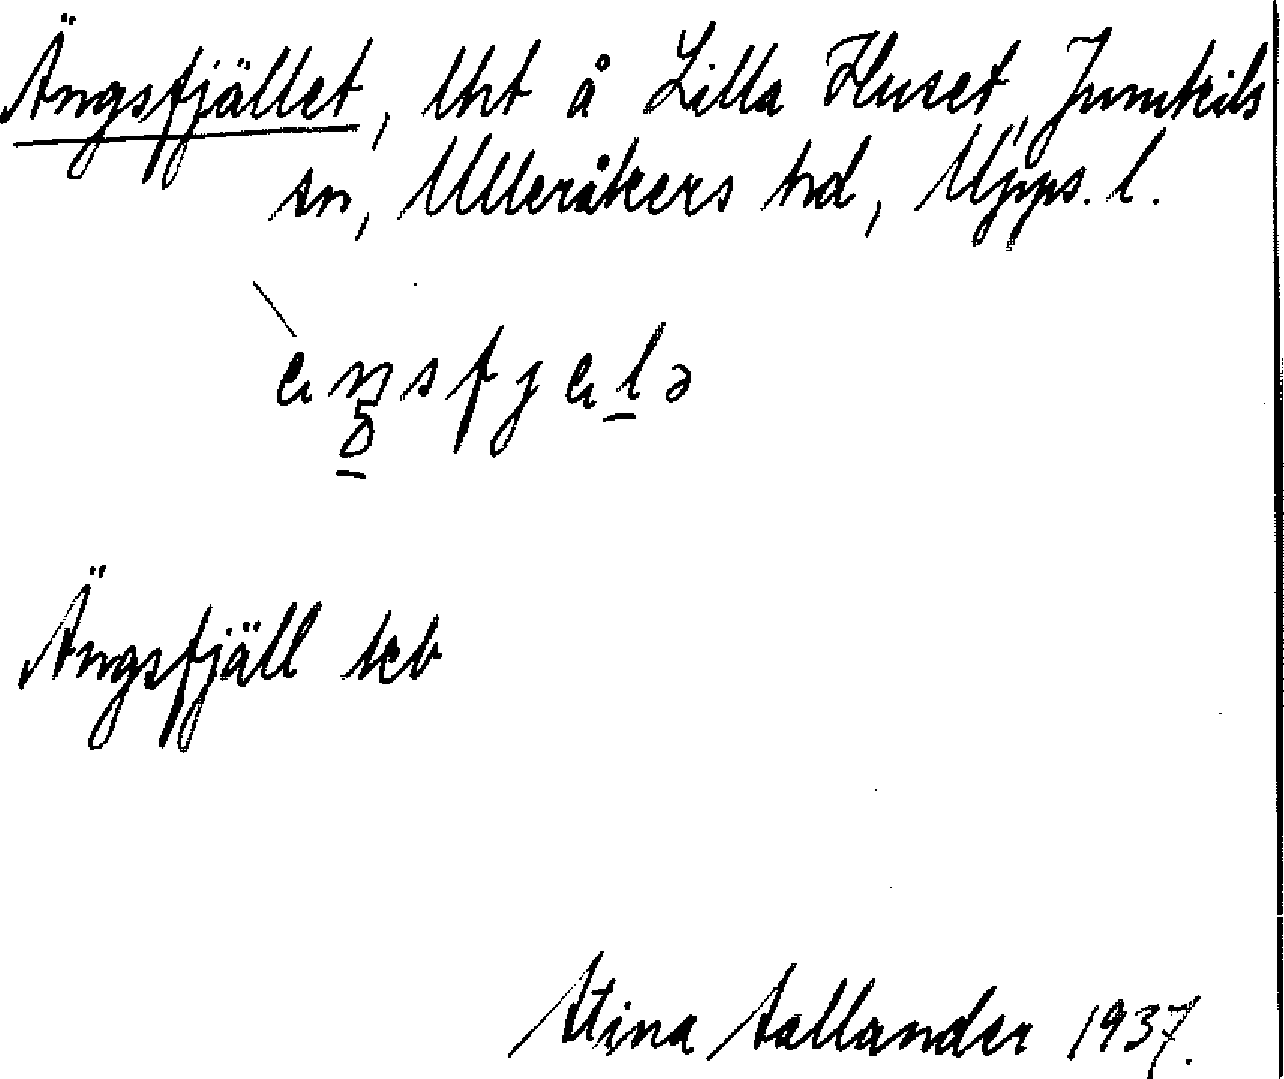 Ängsfjället, lht å Lilla Huset, Jumkils
sn, Ulleråkers hd, Upps. l.
Ängsfjäll keb
Stina Sallander 1937.